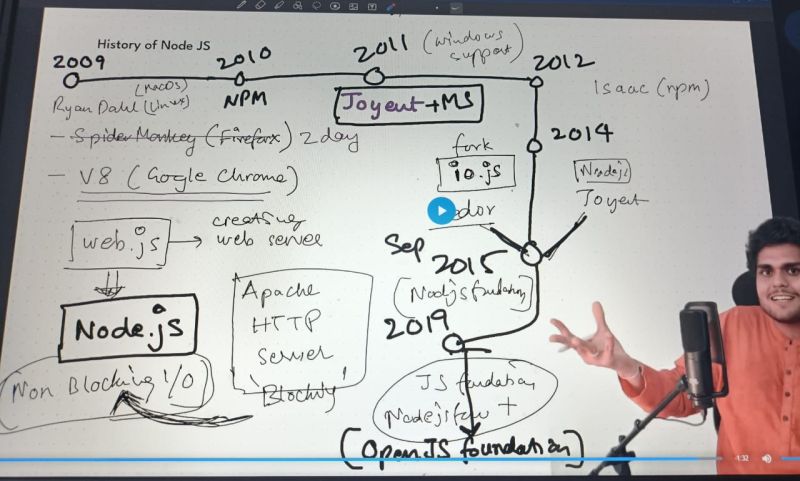 History of Node JS
2009
2010
2011
(windows support)
2012
(macOS)
Ryan Dahl (Linux)
NPM
Joyent + MS
Isaac (npm)
- Spider Monkey (Firefox) 2 day
- V8 (Google Chrome)
fork
io.js
2014
Nodejs
Joyent
web.js → creating
web server
Sep 2015
(Nodjs foundation)
Node.js
Apache
HTTP
Server
'Blocking'
2019
Non Blocking I/O
JS foundation
+
(OpenJS foundation)